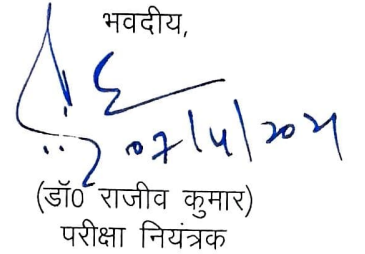 भवदीय,
07/4/2021
(डॉ0 राजीव कुमार)
परीक्षा नियंत्रक